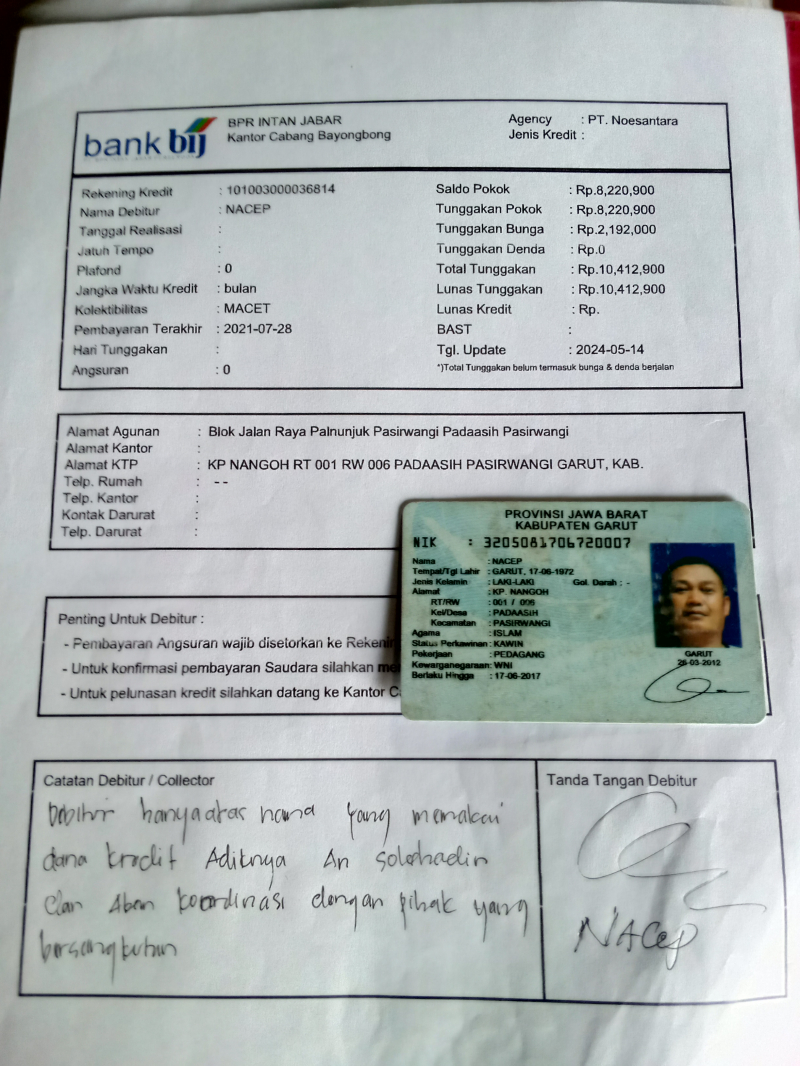 bank bij
BPR INTAN JABAR
Kantor Cabang Bayongbong
Agency : PT. Noesantara
Jenis Kredit :
Rekening Kredit : 101003000036814
Nama Debitur : NACEP
Tanggal Realisasi :
Jatuh Tempo :
Plafond : 0
Jangka Waktu Kredit : bulan
Kolektibilitas : MACET
Pembayaran Terakhir : 2021-07-28
Hari Tunggakan :
Angsuran : 0
Saldo Pokok : Rp.8,220,900
Tunggakan Pokok : Rp.8,220,900
Tunggakan Bunga : Rp.2,192,000
Tunggakan Denda : Rp.0
Total Tunggakan : Rp.10,412,900
Lunas Tunggakan : Rp.10,412,900
Lunas Kredit : Rp.
BAST :
Tgl. Update : 2024-05-14
*)Total Tunggakan belum termasuk bunga & denda berjalan
Alamat Agunan : Blok Jalan Raya Palnunjuk Pasirwangi Padaasih Pasirwangi
Alamat Kantor :
Alamat KTP : KP NANGOH RT 001 RW 006 PADAASIH PASIRWANGI GARUT, KAB.
Telp. Rumah : --
Telp. Kantor :
Kontak Darurat :
Telp. Darurat :
PROVINSI JAWA BARAT
KABUPATEN GARUT
NIK : 3205081706720007
Nama : NACEP
Tempat/Tgl Lahir : GARUT, 17-06-1972
Jenis Kelamin : LAKI-LAKI Gol. Darah : -
Alamat : KP. NANGOH
RT/RW : 001 / 006
Kel/Desa : PADAASIH
Kecamatan : PASIRWANGI
Agama : ISLAM
Status Perkawinan: KAWIN
Pekerjaan : PEDAGANG
Kewarganegaraan: WNI
Berlaku Hingga : 17-06-2017
GARUT
26-03-2012
Penting Untuk Debitur :
- Pembayaran Angsuran wajib disetorkan ke
- Untuk konfirmasi pembayaran Saudara silahkan
- Untuk pelunasan kredit silahkan datang ke Kantor
Catatan Debitur / Collector
Debitur hanya atas nama yang memakai
dana kredit Adiknya An
dan Akan koordinasi dengan pihak yang
bersangkutan
Tanda Tangan Debitur
NACep